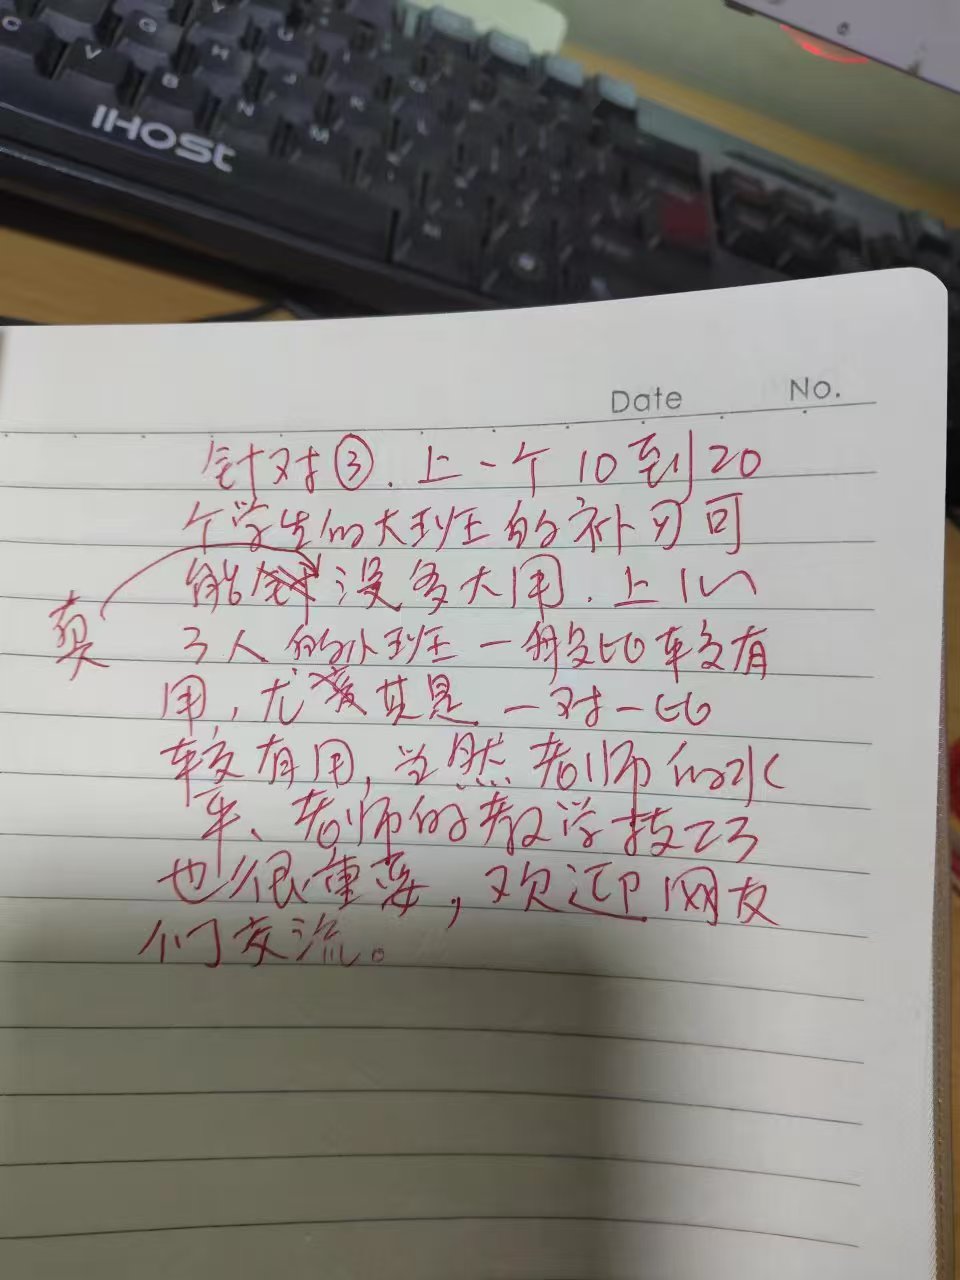 IIHOST
Date No.
针对③.上一个10到20
个学生的大班的补习可
能真没多大用.上1~
3人的小班一般比较有
用,尤其是一对一比
较有用,当然老师的水
平、老师的教学技巧
也很重要,欢迎网友
们交流。